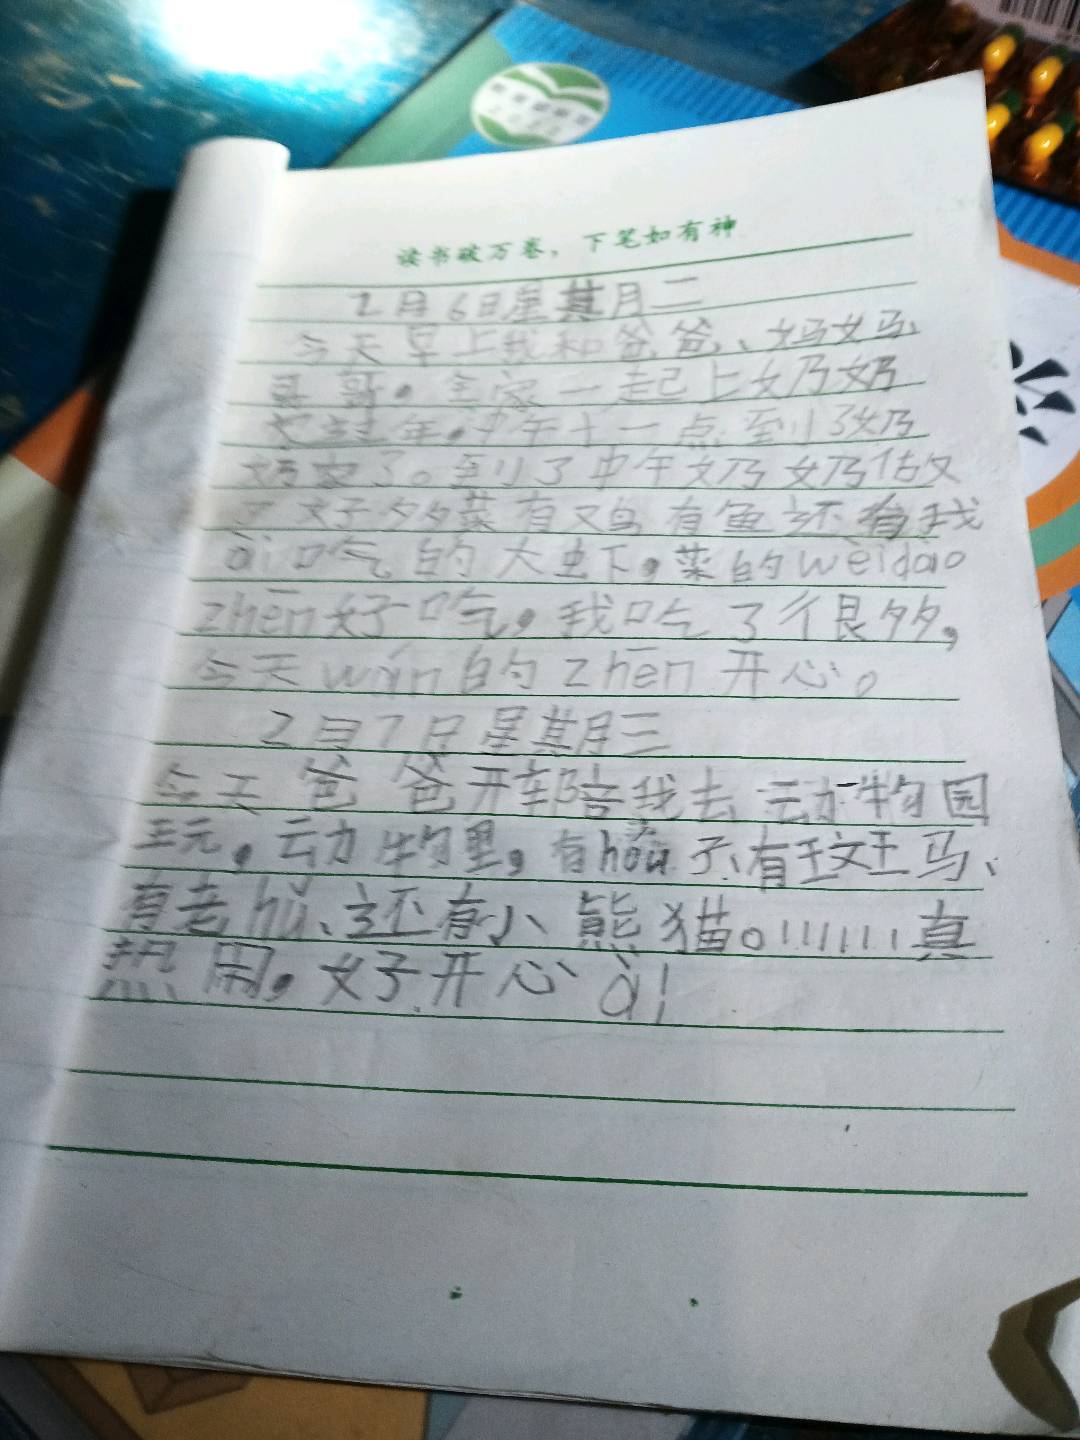 读书破万卷，下笔如有神
2月6日星其月二
今天早上我和爸爸、妈妈
哥哥。全家一起上奶奶
家过年。中午十一点到了奶
奶家了。到了中午奶奶做
了好多菜有鸡有鱼还有我
ài吃的大虾。菜的wèidao
zhēn好吃，我吃了很多，
今天wán的zhēn开心。
2月7日星期三
今天爸爸开车陪我去动物园
玩。动物里，有hóu子、有斑马、
有老hǔ、还有小熊猫。!!!!!!!真
热闹，好开心à!